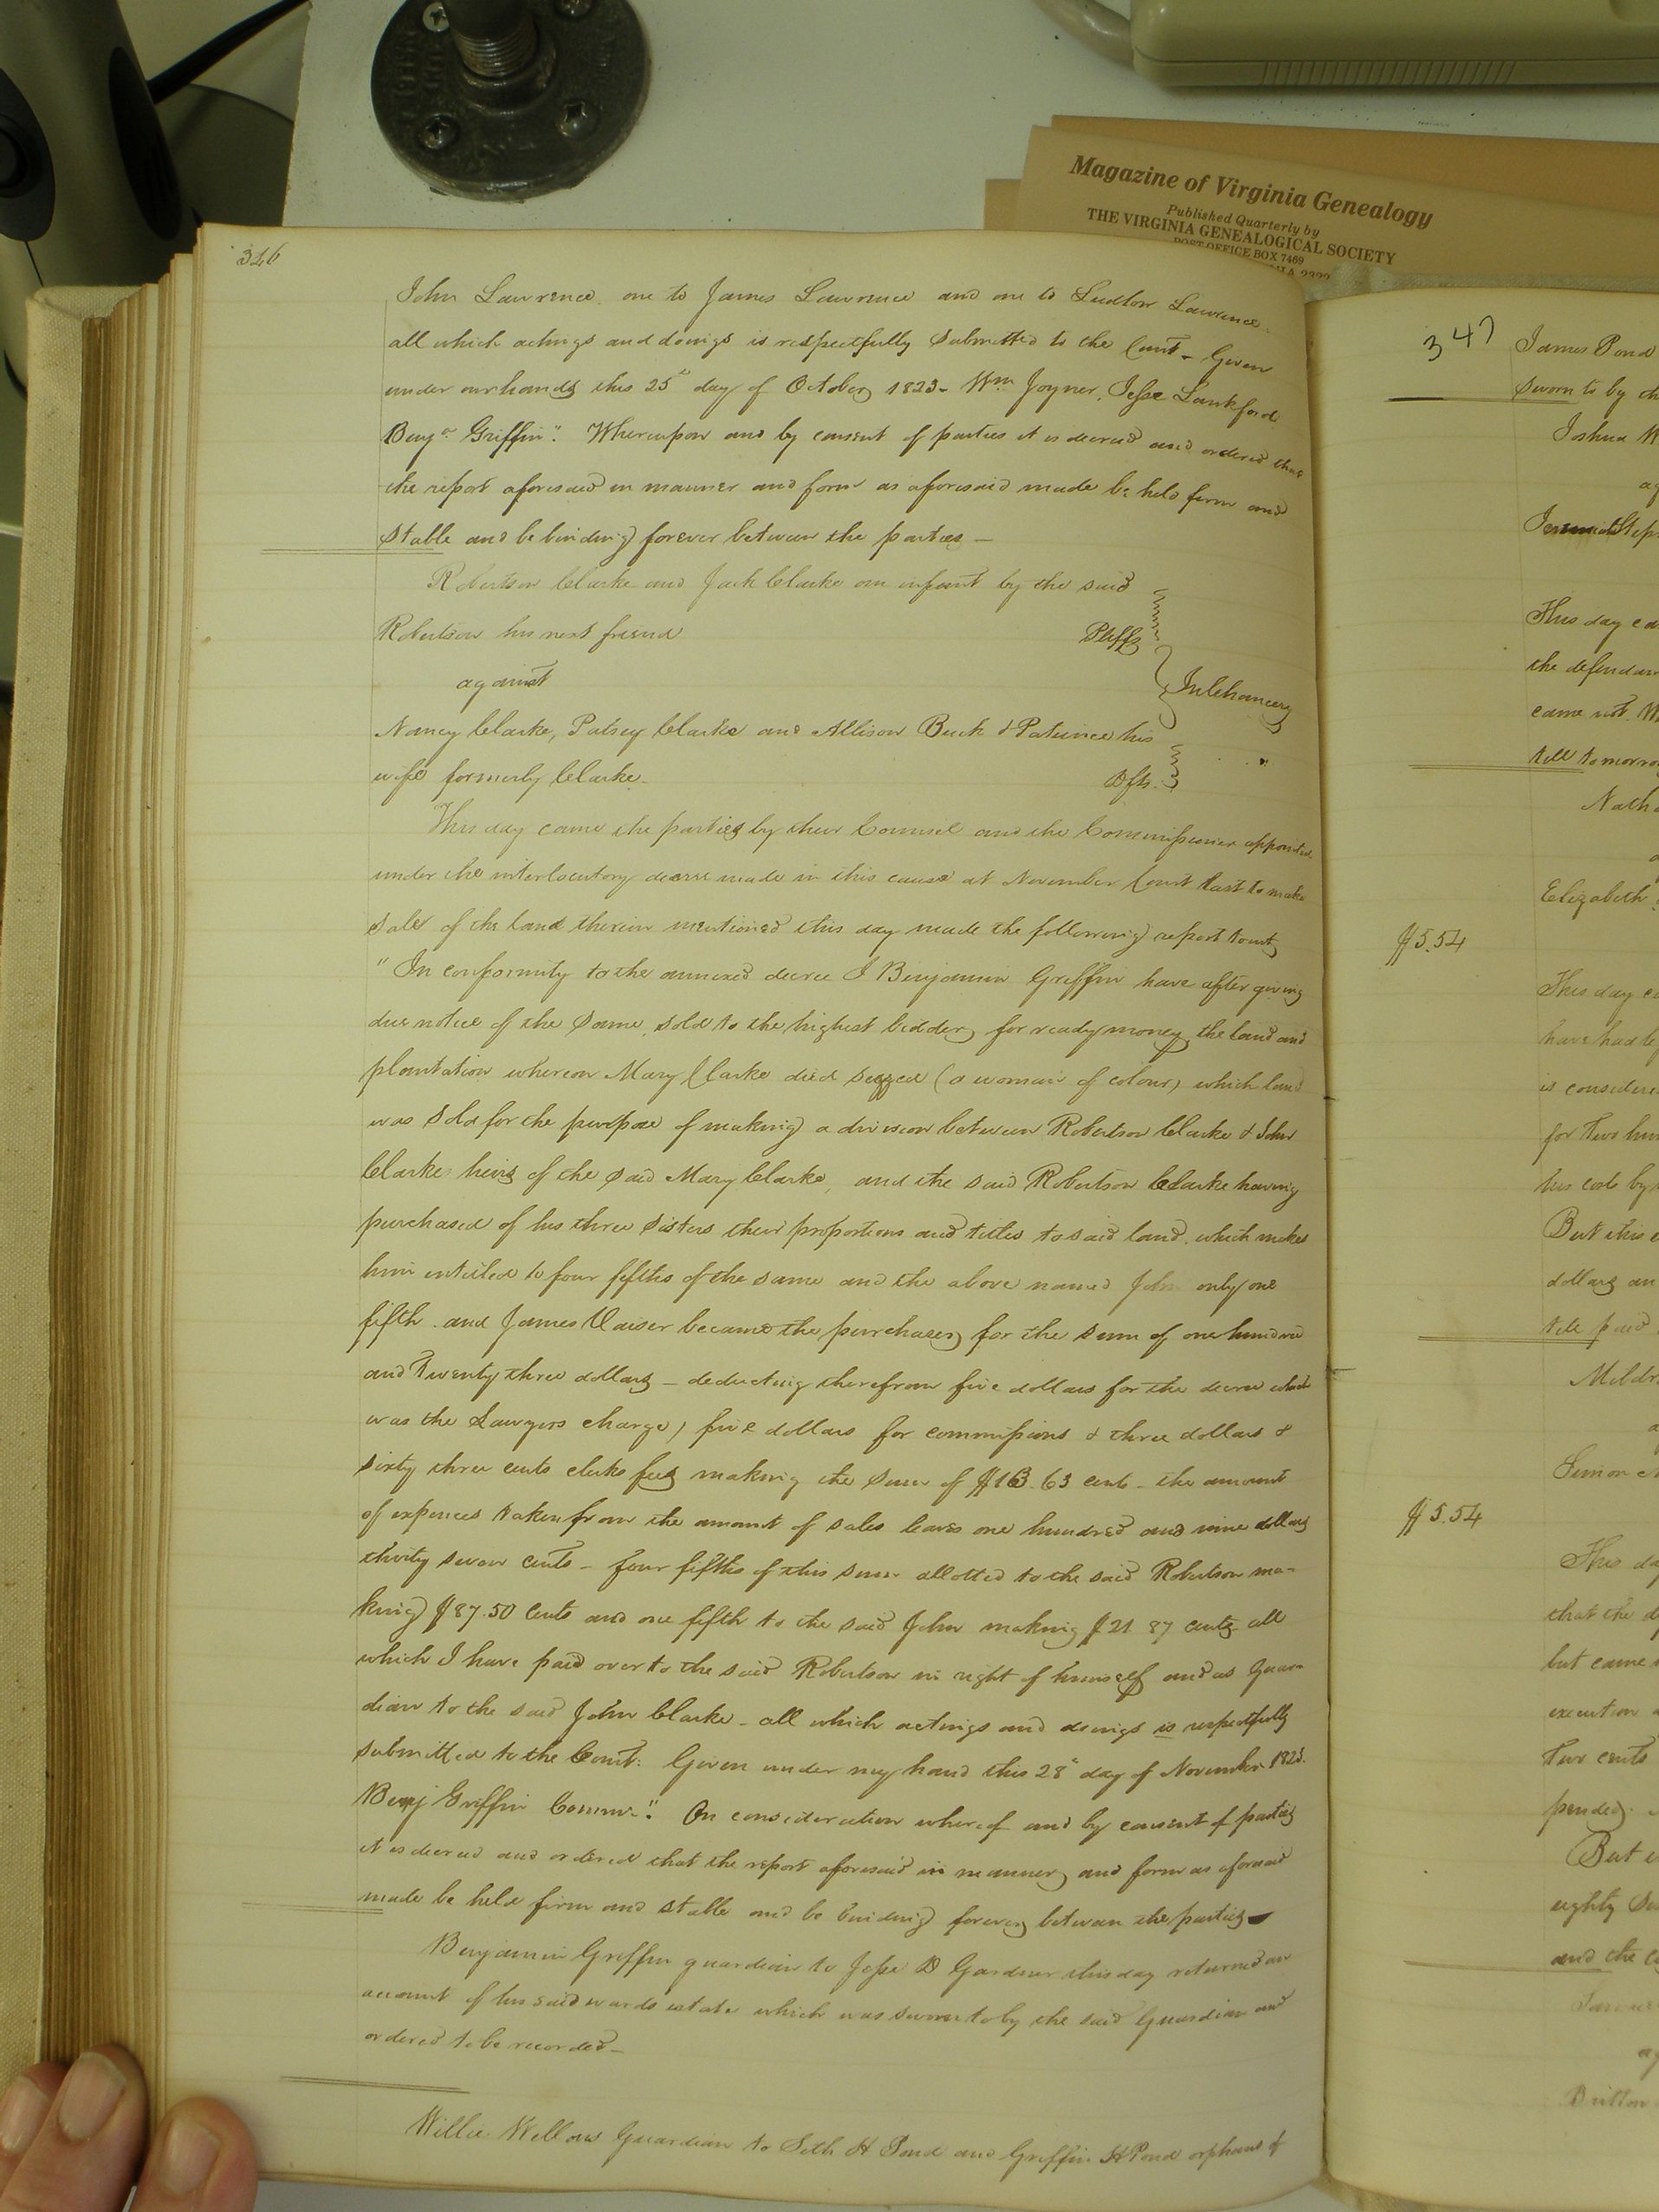 Magazine of Virginia Genealogy
Published Quarterly by
THE VIRGINIA GENEALOGICAL SOCIETY
POST OFFICE BOX 7469
346
John Lawrence, one to James Lawrence and one to Ludlow Lawrence.
all which actings and doings is respectfully submitted to the Court - Given
under our hands this 25th day of October 1823 - Wm Joyner, Jesse Lankford
Benja Griffin". Whereupon and by consent of parties it is decreed and ordered that
the report aforesaid in manner and form as aforesaid made be held firm and
stable and be binding forever between the parties -
Robertson Clarke and Jack Clarke an infant by the said
Robertson his next friend Pltffs
against In Chancery
Nancy Clarke, Patsey Clarke and Allison Buck & Patience his
wife formerly Clarke. Dfts.
This day came the parties by their Counsel and the Commissioner appointed
under the interlocutory decree made in this cause at November Court last to make
sale of the land therein mentioned this day made the following report towit
" In conformity to the annexed decree I Benjamin Griffin have after giving
due notice of the same, sold to the highest bidder, for ready money, the land and
plantation whereon Mary Clarke died seized (a woman of colour) which land
was sold for the purpose of making a division between Robertson Clarke & John
Clarke heirs of the said Mary Clarke, and the said Robertson Clarke having
purchased of his three sisters their proportions and titles to said land. which makes
him intitled to four fifths of the same and the above named John only one
fifth. and James Vaiser became the purchaser, for the sum of one hundred
and twenty three dollars - deducting therefrom five dollars for the decree which
was the Lawyers charge, five dollars for commissions & three dollars &
sixty three cents clerks fees making the sum of $13.63 cents - the amount
of expences taken from the amount of sales leaves one hundred and nine dollars
thirty seven cents - four fifths of this sum allotted to the said Robertson ma-
king $87.50 Cents and one fifth to the said John making $21 87 cents all
which I have paid over to the said Robertson in right of himself and as Guar-
dian to the said John Clarke - all which actings and doings is respectfully
submitted to the Court. Given under my hand this 28th day of November 1823.
Benj Griffin Commr." On consideration whereof and by consent of parties
it is decreed and ordered that the report aforesaid in manner, and form as aforesaid
made be held firm and stable and be binding forever, between the parties -
Benjamin Griffin guardian to Jesse D Gardner this day returned an
account of his said wards estate which was sworn to by the said Guardian and
ordered to be recorded -
Willie Guardian to Seth H Pond and Griffin H Pond orphans of
347
James Pond
sworn to by
Joshua
This day
the defendan
came not.
till tomorro
Nath
Elizabeth
$5.54
This day
have had
is considere
for Two hun
his costs by
But this
dollars an
till paid
Mildr
Simon
$5.54
This da
that the
but came
execution
Two cents
pended.
But
eighty
and the
Britton